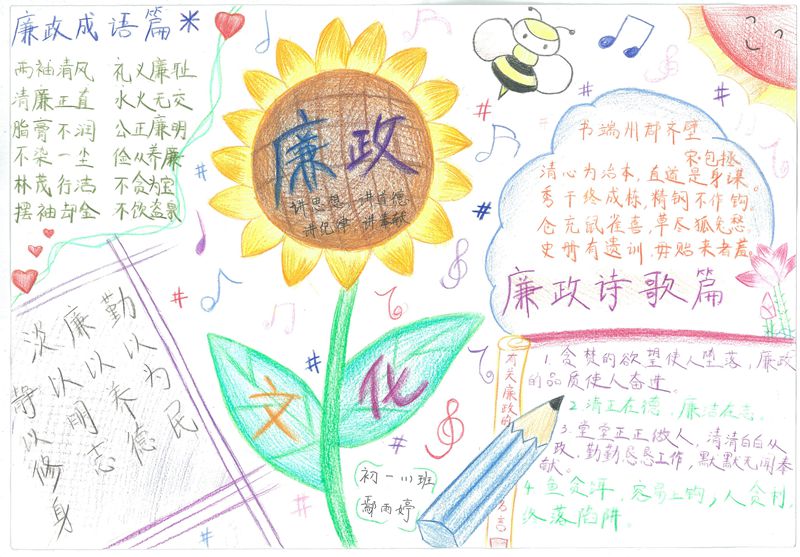 廉政成语篇
两袖清风 礼义廉耻
清廉正直 水火无交
脂膏不润 公正廉明
不染一尘 俭从养廉
林茂行洁 不贪为宝
摆袖却金 不饮盗泉
廉政
讲思想 讲道德
讲纪律 讲奉献
文化
书端州郡齐壁
宋包拯
清心为治本,直道是身谋。
秀干终成栋,精钢不作钩。
仓充鼠雀喜,草尽狐兔愁。
史册有遗训,毋贻来者羞。
廉政诗歌篇
勤以为民
廉以养德
淡以明志
静以修身
有关廉政的
名言
1.贪婪的欲望使人堕落,廉政
的品质使人奋进。
2.清正在德,廉洁在志。
3.堂堂正正做人,清清白白从
政,勤勤恳恳工作,默默无闻奉
献。
4.鱼贪饵,容易上钩,人贪利,
终落陷阱
初一川班
鄢雨婷